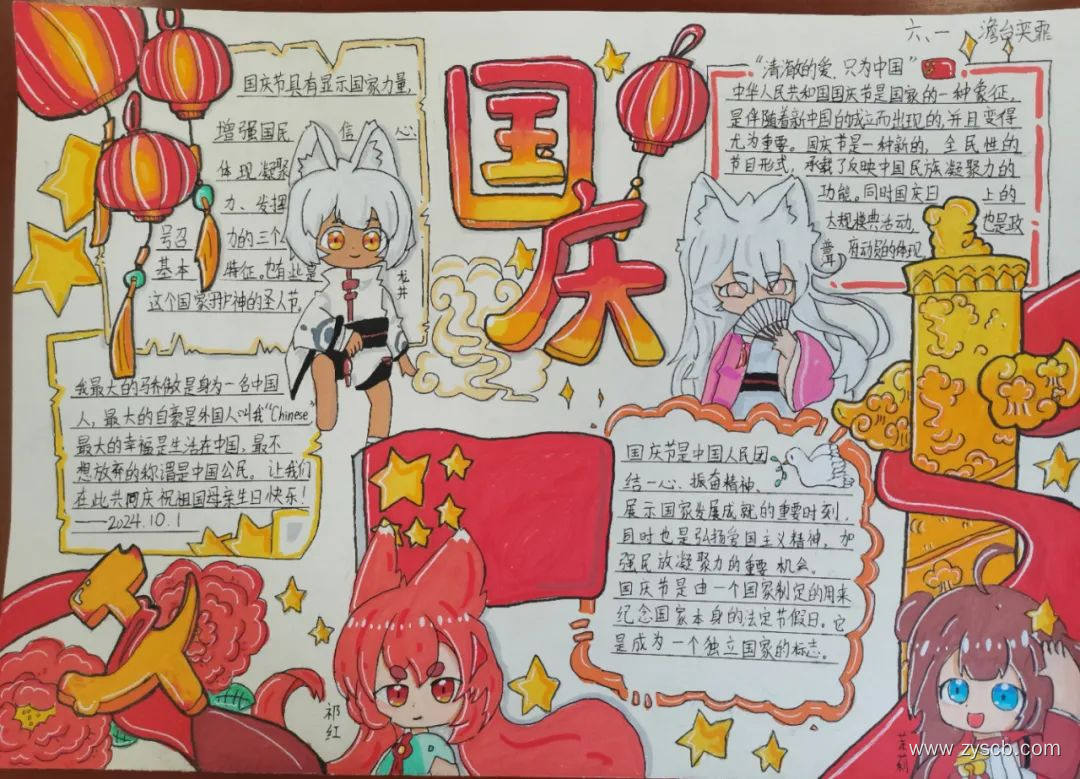 六、一 澹台奕霏
国庆
国庆节具有显示国家力量,
增强国民 信 心.
体现凝聚
力、发挥
号召 力的三个
基本 特征。也有
这个国家守护神的圣人节.
龙井
"清澈的爱,只为中国"
中华人民共和国国庆节是国家的一种象征,
是伴随着新中国的成立而出现的,并且变得
尤为重要。国庆节是一种新的, 全民性的
节日形式, 承载了反映中国民族凝聚力的
功能。同时国庆日 上的
大规模典活动, 也是政
府动员的体现.
我最大的骄傲是身为一名中国
人, 最大的自豪是外国人叫我"Chinese"
最大的幸福是生活在中国, 最不
想放弃的称谓是中国公民。让我们
在此共同庆祝祖国母亲生日快乐!
——2024.10.1
国庆节是中国人民团
结一心、振奋精神、
展示国家发展成就的重要时刻,
同时也是弘扬爱国主义精神, 加
强民族凝聚力的重要 机会。
国庆节是由一个国家制定的用来
纪念国家本身的法定节假日。它
是成为一个独立国家的标志。
祁红
www.zyscb.com